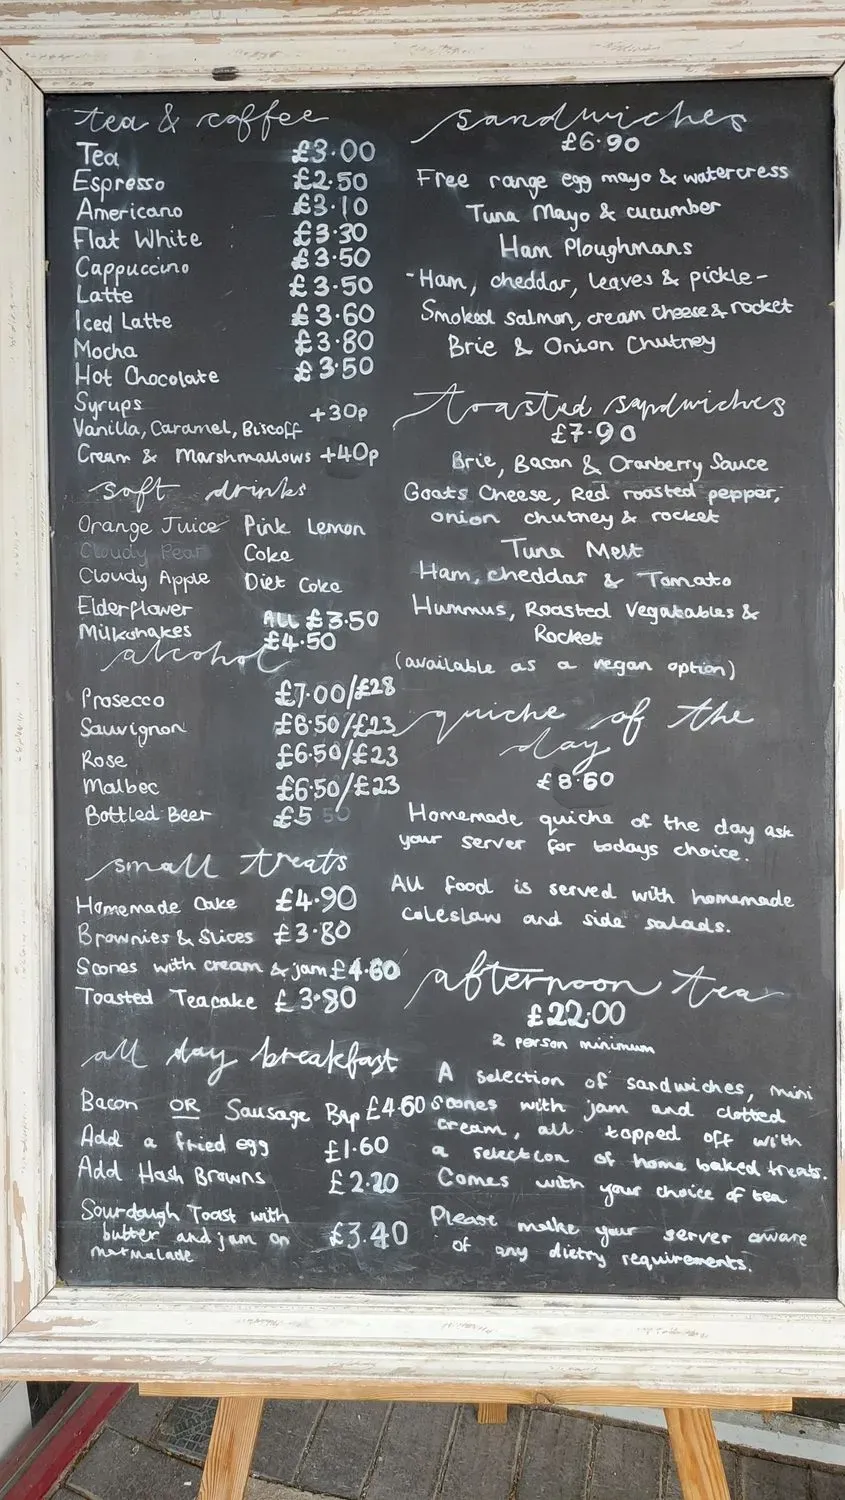 tea & coffee
Tea £3.00
Espresso £2.50
Americano £3.10
Flat White £3.30
Cappuccino £3.50
Latte £3.50
Iced Latte £3.60
Mocha £3.80
Hot Chocolate £3.50
Syrups
Vanilla, Caramel, Biscoff +30p
Cream & Marshmallows +40p
soft drinks
Orange Juice Pink Lemon
Cloudy Pear Coke
Cloudy Apple Diet Coke
Elderflower All £3.50
Milkshakes £4.50
alcohol
Prosecco £7.00/£28
Sauvignon £6.50/£23
Rose £6.50/£23
Malbec £6.50/£23
Bottled Beer £5
small treats
Homemade Cake £4.90
Brownies & Slices £3.80
Scones with cream & jam £4.60
Toasted Teacake £3.80
all day breakfast
Bacon OR Sausage Bap £4.60
Add a fried egg £1.60
Add Hash Browns £2.20
Sourdough Toast with
butter and jam or £3.40
marmalade
sandwiches
£6.90
Free range egg mayo & watercress
Tuna Mayo & cucumber
Ham Ploughmans
-Ham, cheddar, leaves & pickle-
Smoked salmon, cream cheese & rocket
Brie & Onion Chutney
toasted sandwiches
£7.90
Brie, Bacon & Cranberry Sauce
Goats Cheese, Red roasted pepper,
onion chutney & rocket
Tuna Melt
Ham, cheddar & Tomato
Hummus, Roasted Vegatables &
Rocket
(available as a vegan option)
quiche of the
day
£8.60
Homemade quiche of the day ask
your server for todays choice.
All food is served with homemade
coleslaw and side salads.
afternoon tea
£22.00
2 person minimum
A selection of sandwiches, mini
scones with jam and clotted
cream, all topped off with
a selection of home baked treats.
Comes with your choice of tea
Please make your server aware
of any dietry requirements.